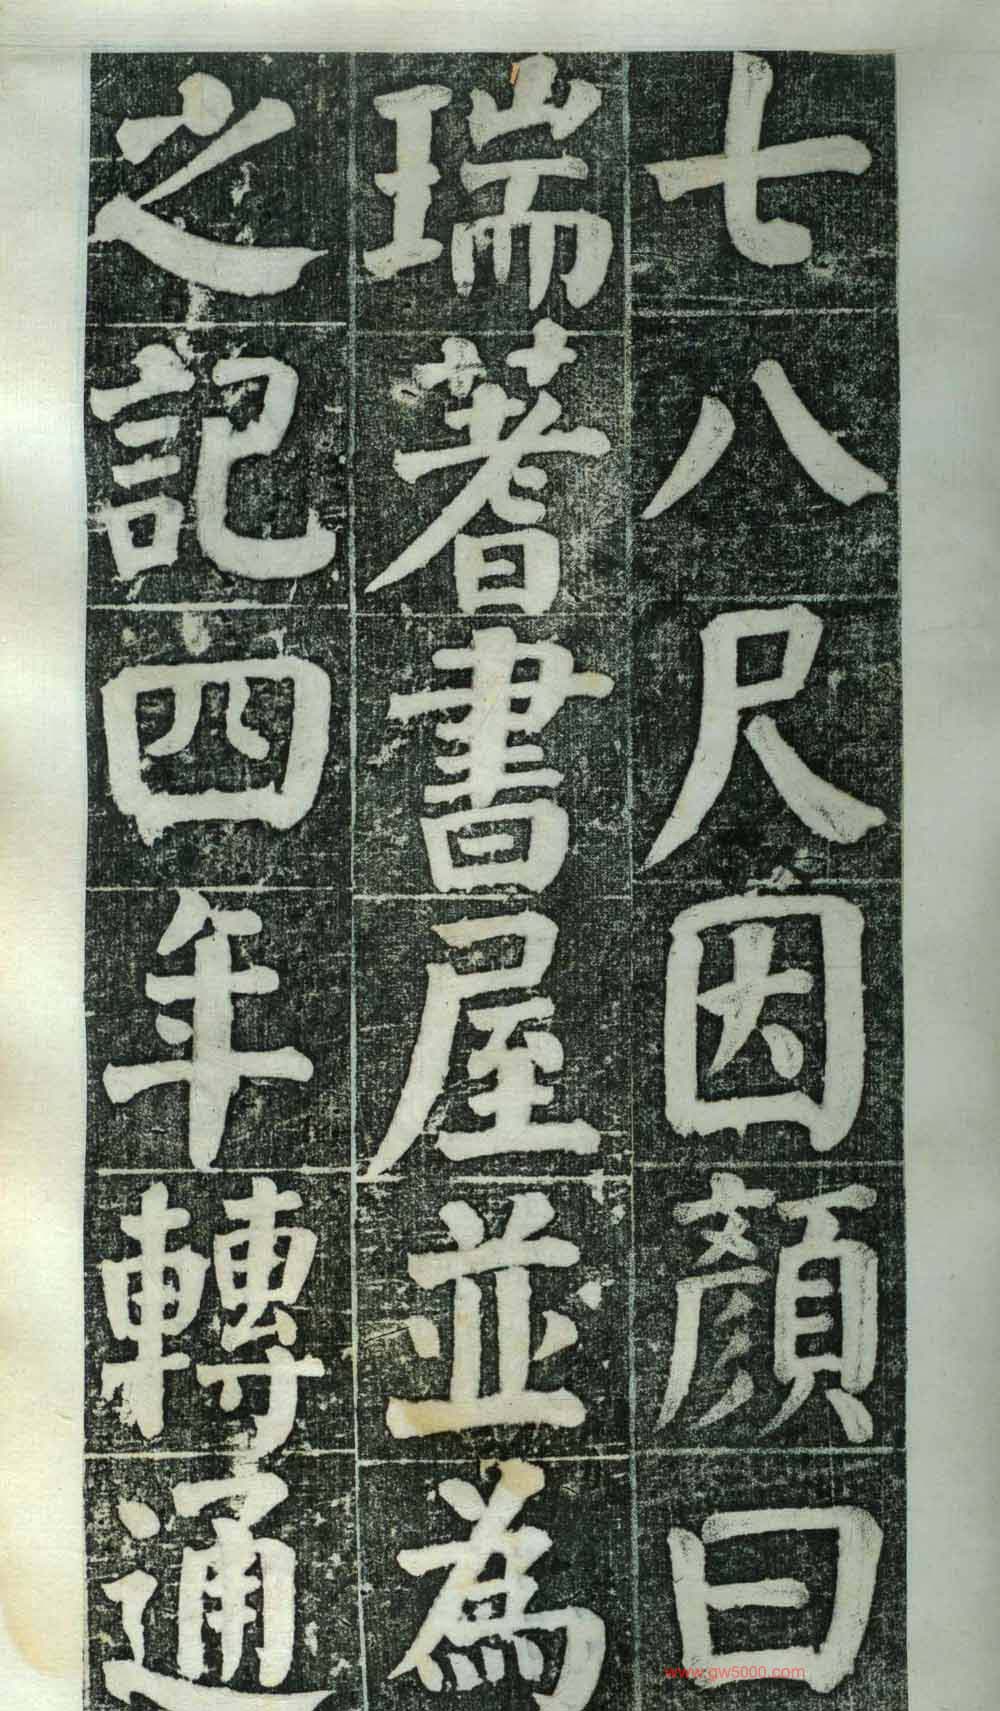 七八尺因顏曰
瑞蓍書屋並為
之記四年轉通
www.gw5000.com